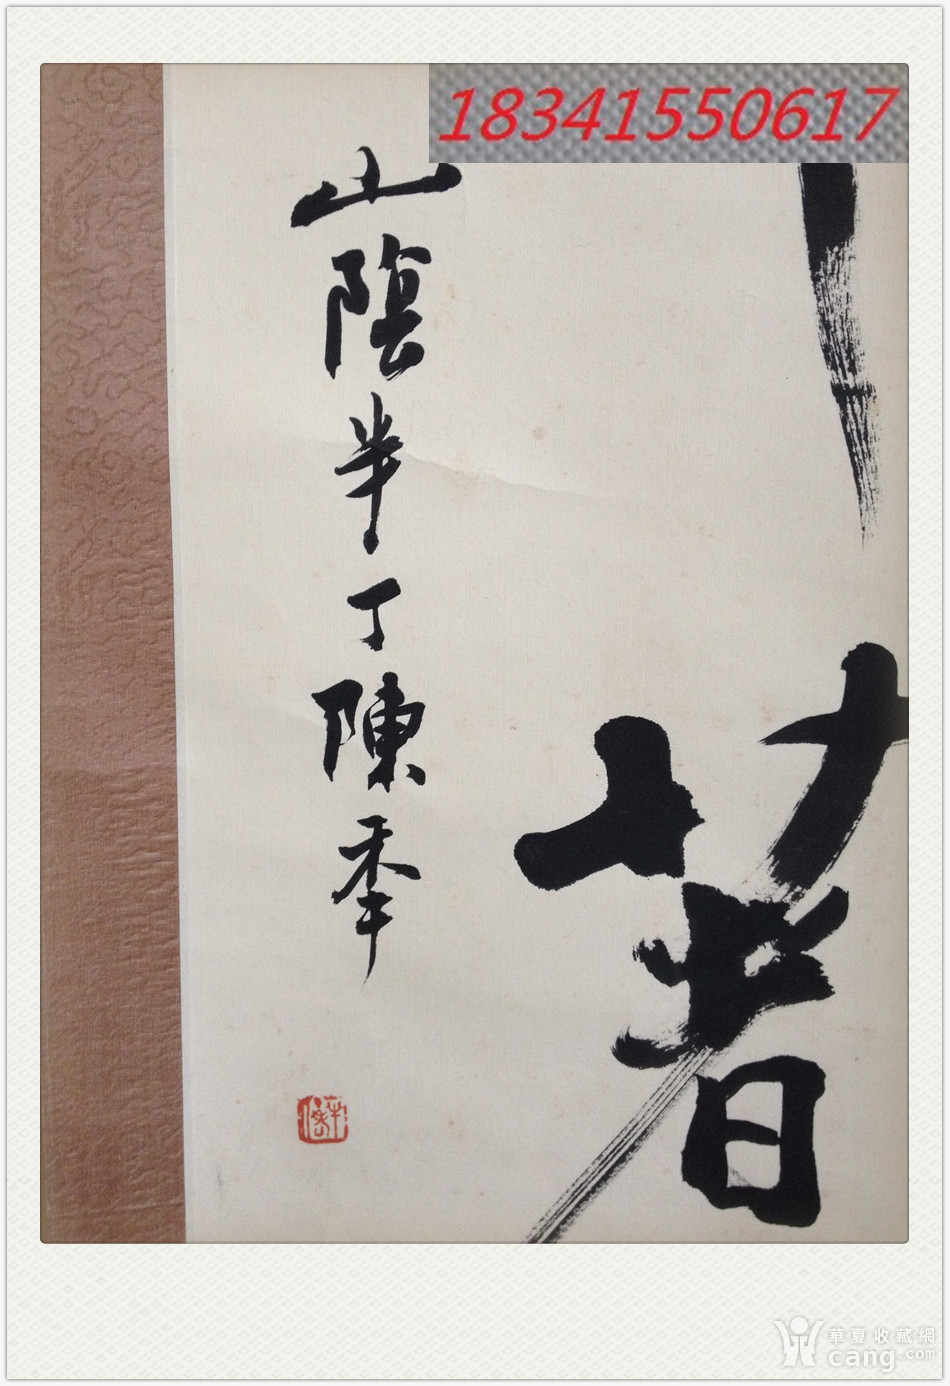 18341550617
著
山陰半丁陳秊
華夏收藏網
cang.com